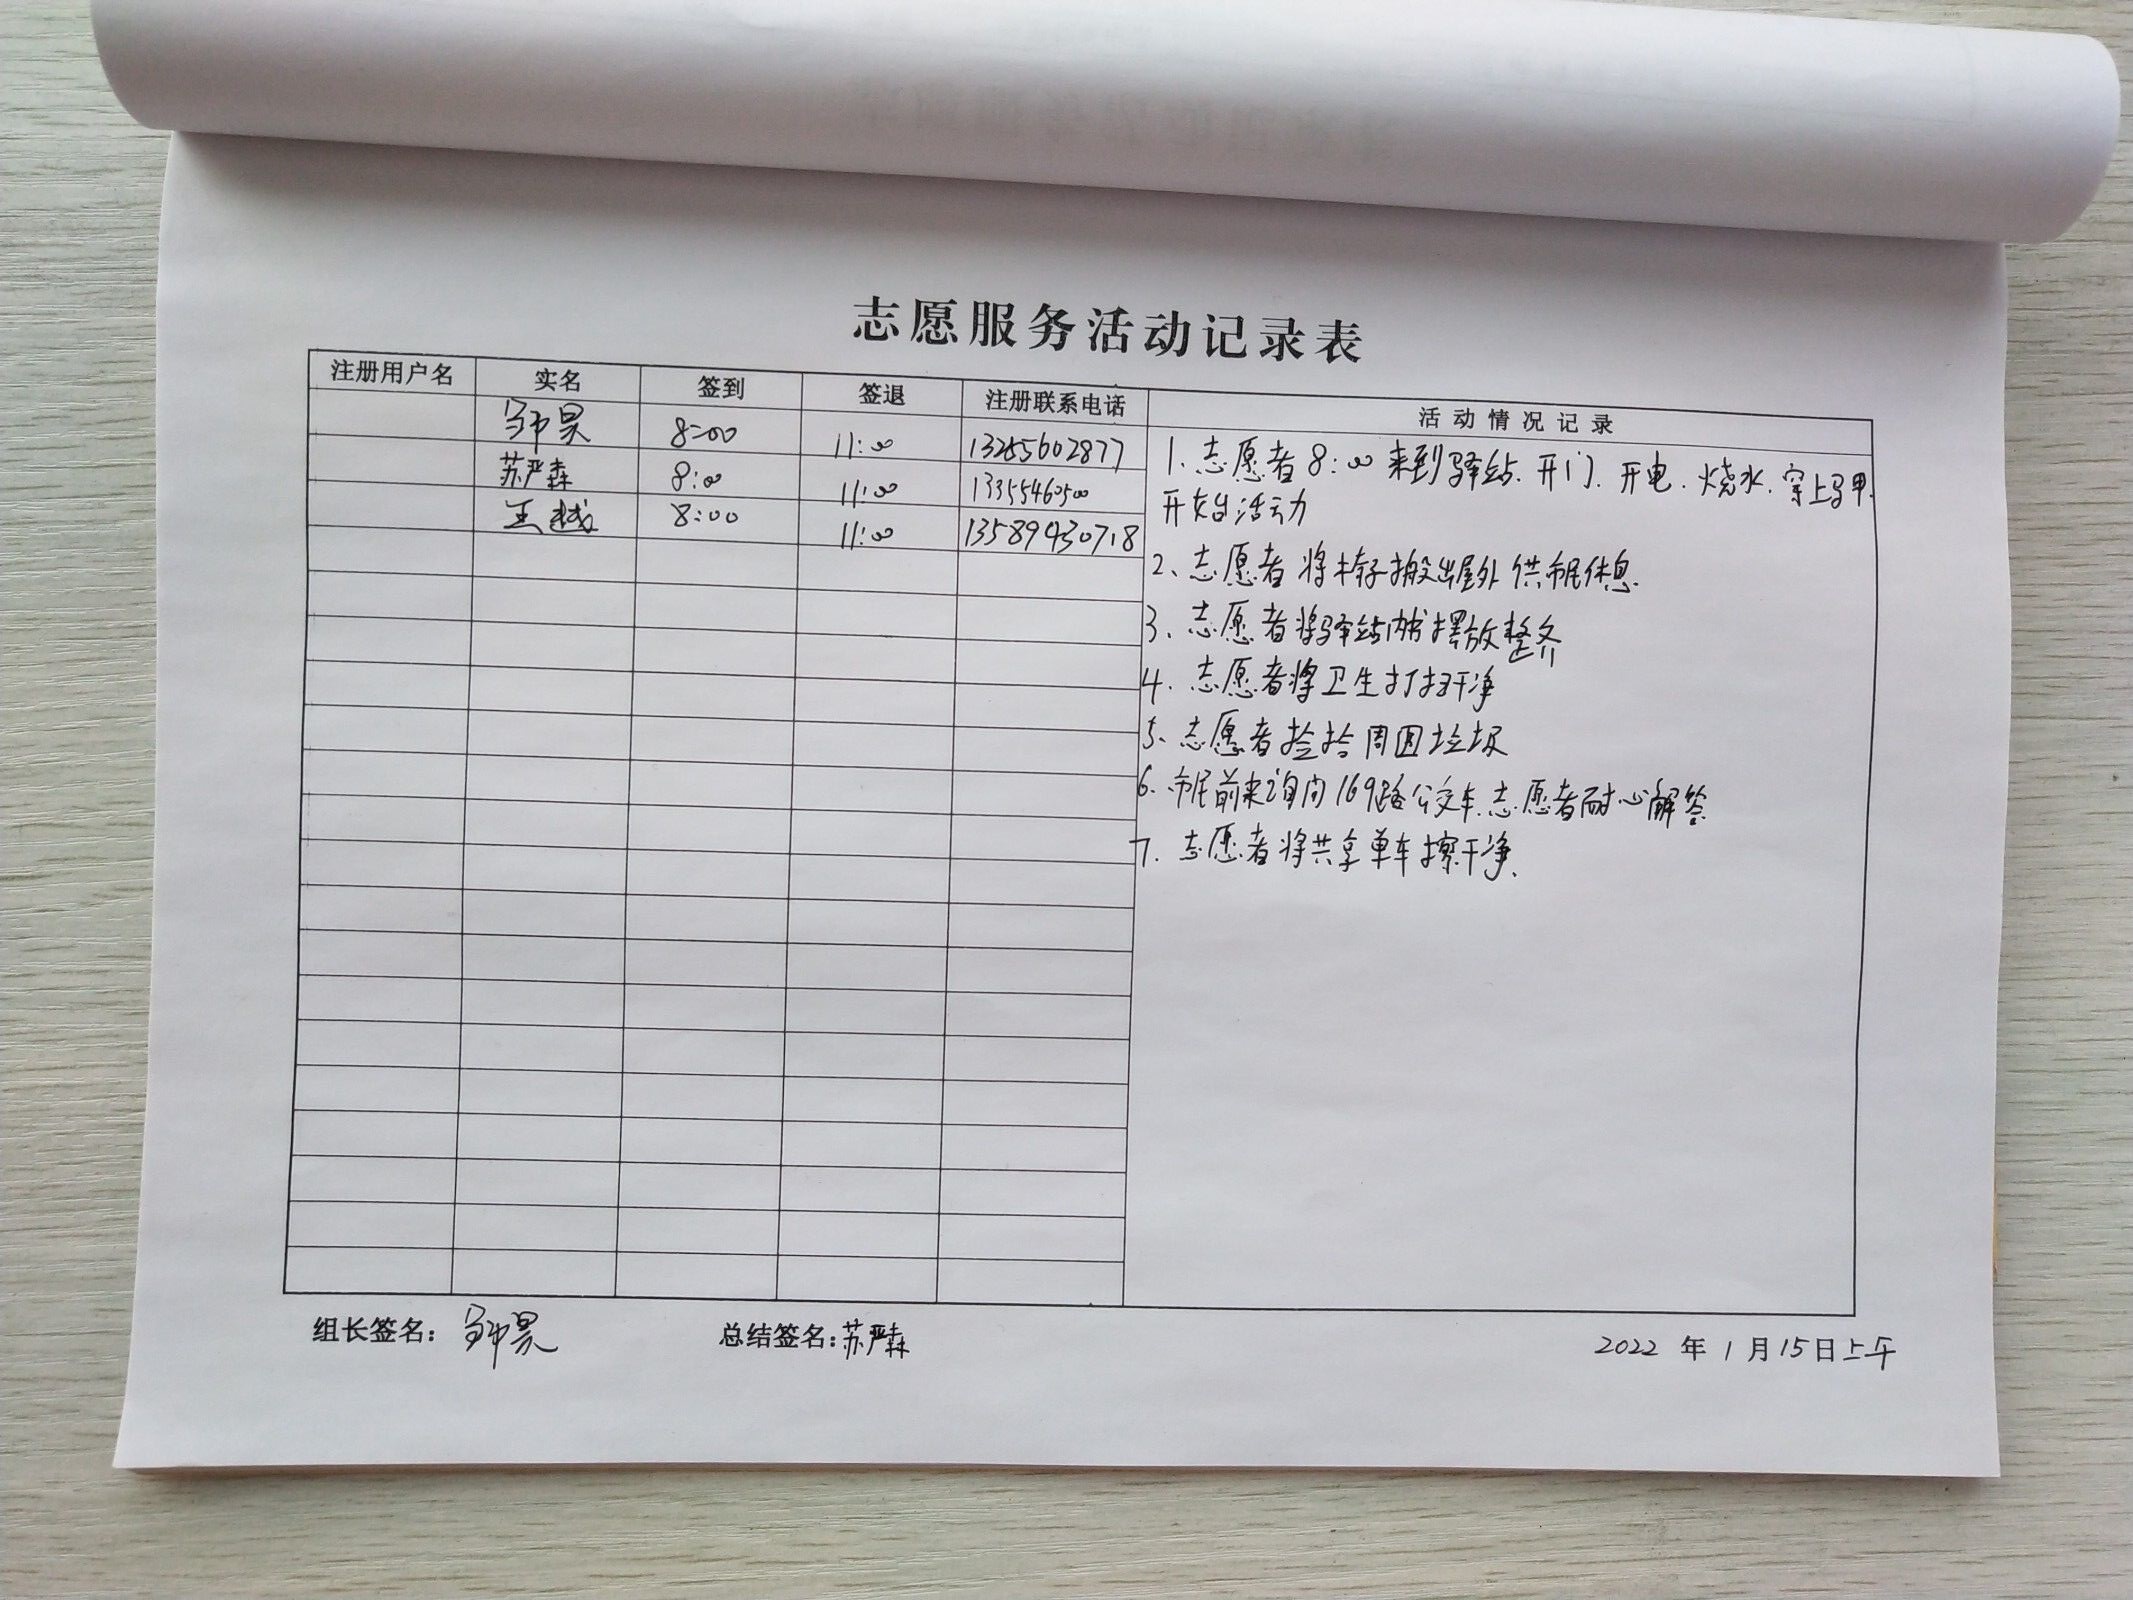 志愿服务活动记录表
注册用户名 实名 签到 签退 注册联系电话 活动情况记录
8:00 11:00 13255602877
苏严森 8:00 11:00 13355460500
王越 8:00 11:00 13589430718
1、志愿者8:00来到驿站、开门、开电、烧水、穿上马甲
开始活动
2、志愿者将椅子搬出屋外供市民休息
3、志愿者将驿站内书摆放整齐
4、志愿者将卫生打扫干净
5、志愿者捡拾周围垃圾
6、市民前来询问169路公交车,志愿者耐心解答
7、志愿者将共享单车擦干净、
组长签名: 总结签名:苏严森 2022年1月15日上午